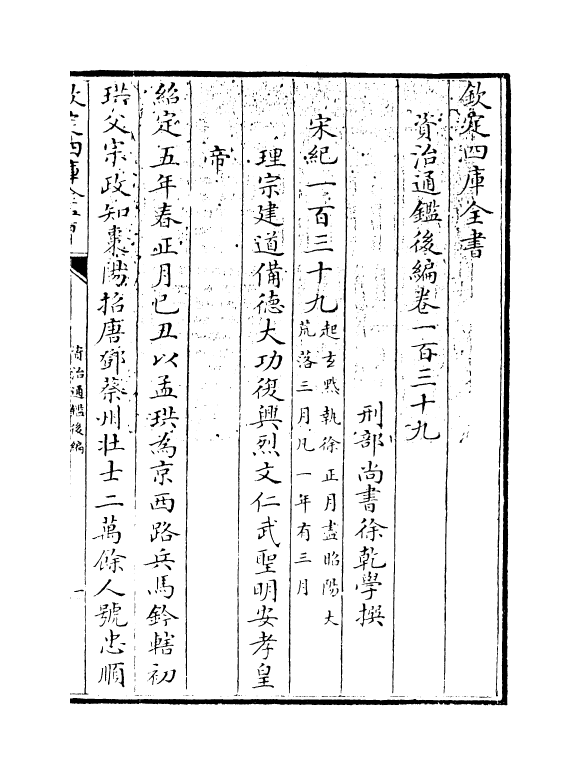 欽定四庫全書
資治通鑑後編卷一百三十九
刑部尚書徐乾學撰
宋紀一百三十九
起玄黓執徐正月盡昭陽大
荒落三月凡一年有三月
理宗建道備德大功復興烈文仁武聖明安孝皇
帝
紹定五年春正月己丑以孟珙為京西路兵馬鈐轄初
珙父宗政知棗陽招唐鄧蔡州壯士二萬餘人號忠順
欽定四庫全書
資治通鑑後編
一